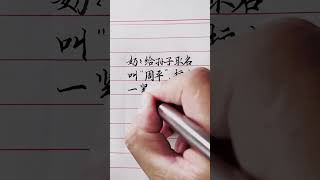 奶:给孙子取名
叫“周平”.
一